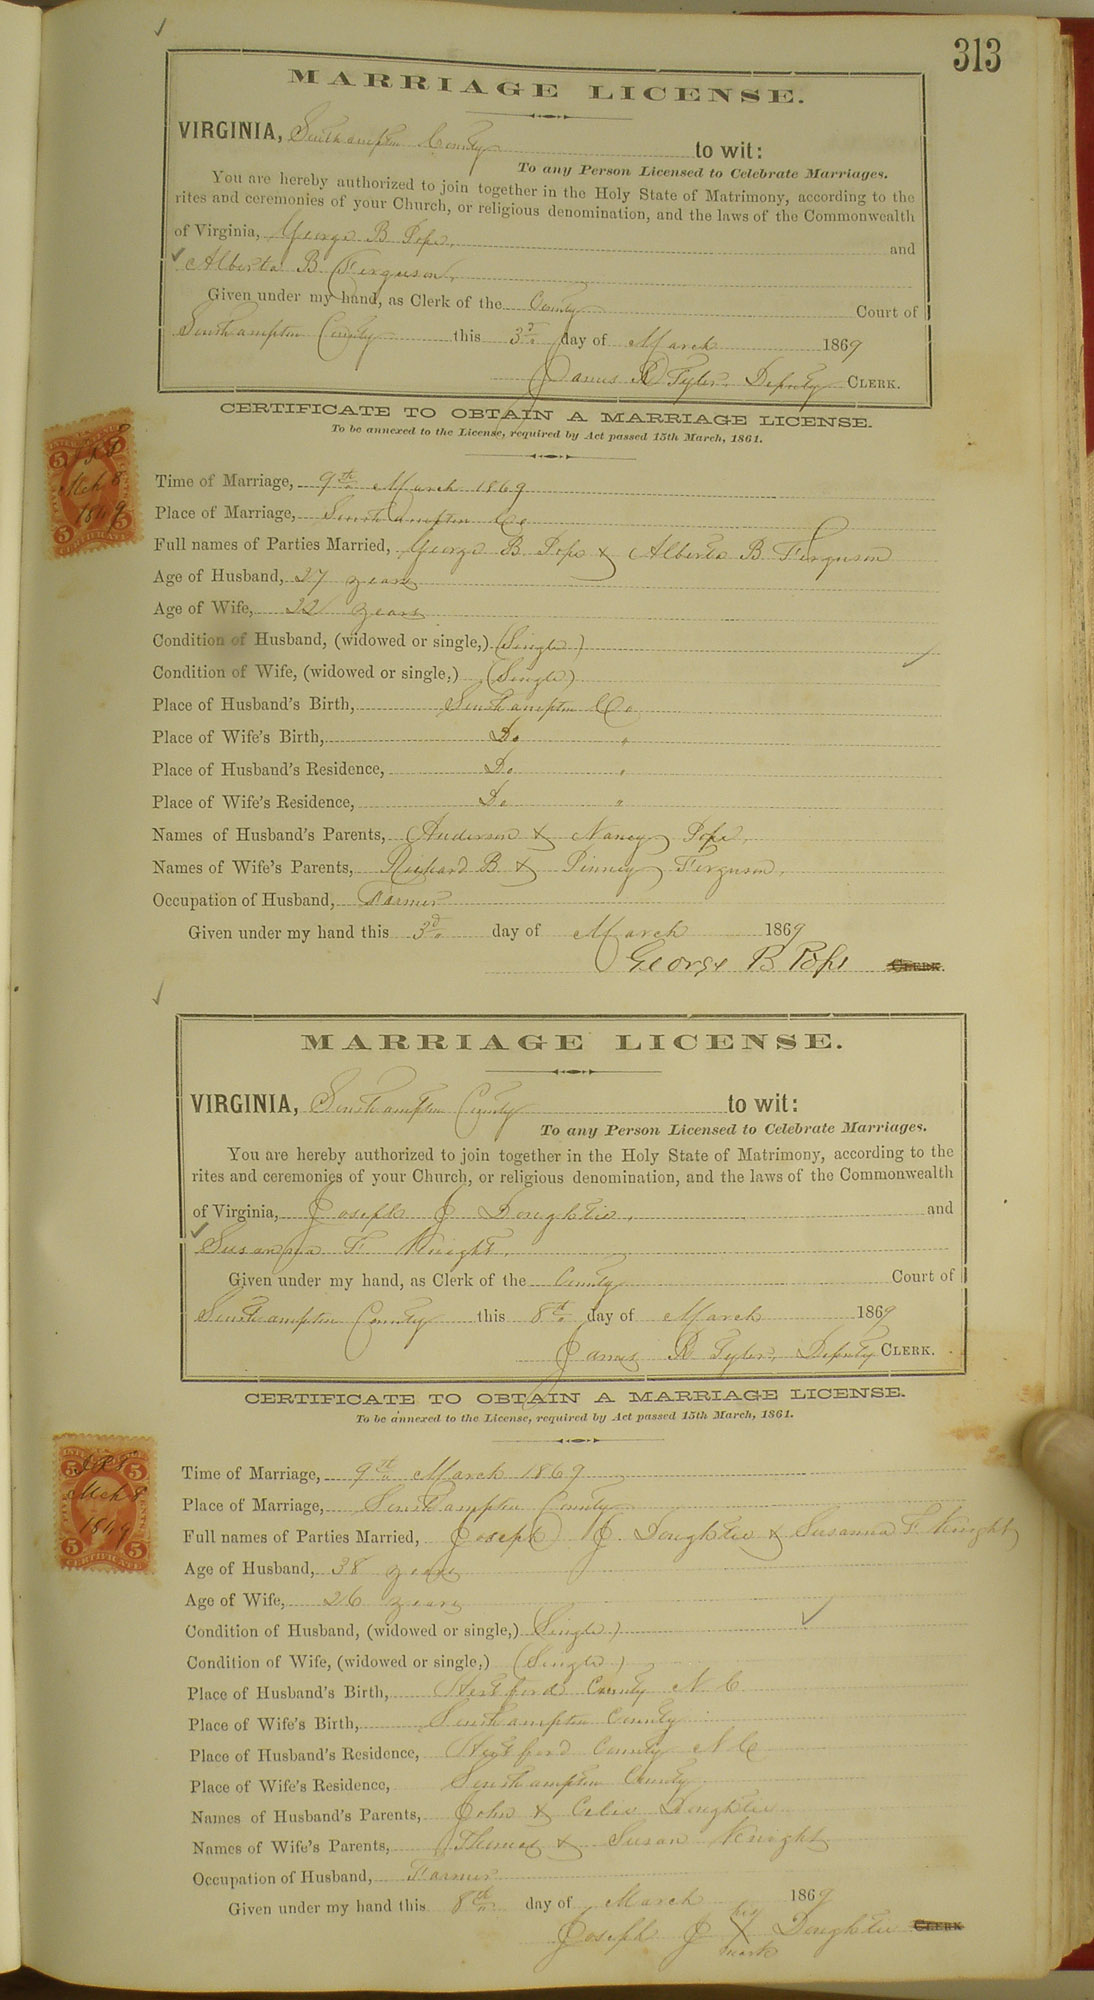 313
MARRIAGE LICENSE.
VIRGINIA, Southampton County to wit:
To any Person Licensed to Celebrate Marriages.
You are hereby authorized to join together in the Holy State of Matrimony, according to the
rites and ceremonies of your Church, or religious denomination, and the laws of the Commonwealth
of Virginia, George B Pope, and
Alberta B. Ferguson,
Given under my hand, as Clerk of the County Court of
Southampton County this 3d day of March 1869
James R Tyler, Deputy CLERK.
CERTIFICATE TO OBTAIN A MARRIAGE LICENSE.
To be annexed to the License, required by Act passed 15th March, 1861.
5 5
Mch 8
1869
5 5
CERTIFICATE
Time of Marriage, 9th March 1869
Place of Marriage, Southampton Co
Full names of Parties Married, George B Pope & Alberta B Ferguson
Age of Husband, 27 years
Age of Wife, 22 years
Condition of Husband, (widowed or single,) (Single)
Condition of Wife, (widowed or single,) (Single)
Place of Husband's Birth, Southampton Co
Place of Wife's Birth, Do "
Place of Husband's Residence, Do "
Place of Wife's Residence, Do "
Names of Husband's Parents, Anderson & Nancy Pope,
Names of Wife's Parents, Richard B & Pinney Ferguson,
Occupation of Husband, Farmer
Given under my hand this 3d day of March 1869
George B Pope CLERK.
MARRIAGE LICENSE.
VIRGINIA, Southampton County to wit:
To any Person Licensed to Celebrate Marriages.
You are hereby authorized to join together in the Holy State of Matrimony, according to the
rites and ceremonies of your Church, or religious denomination, and the laws of the Commonwealth
of Virginia, Joseph J Doughtie, and
Susanna F Knight,
Given under my hand, as Clerk of the County Court of
Southampton County this 8th day of March 1869
James R Tyler, Deputy CLERK.
CERTIFICATE TO OBTAIN A MARRIAGE LICENSE.
To be annexed to the License, required by Act passed 15th March, 1861.
5 5
Mch 8
1869
5 5
CERTIFICATE
Time of Marriage, 9th March 1869
Place of Marriage, Southampton County
Full names of Parties Married, Joseph J. Doughtie & Susanna F Knight
Age of Husband, 38 years
Age of Wife, 26 years
Condition of Husband, (widowed or single,) (Single)
Condition of Wife, (widowed or single,) (Single)
Place of Husband's Birth, Hertford County N C
Place of Wife's Birth, Southampton County
Place of Husband's Residence, Hertford County N C
Place of Wife's Residence, Southampton County
Names of Husband's Parents, John & Celie Doughtie
Names of Wife's Parents, Thomas & Susan Knight
Occupation of Husband, Farmer
Given under my hand this 8th day of March 1869
his
Joseph J X Doughtie CLERK
mark